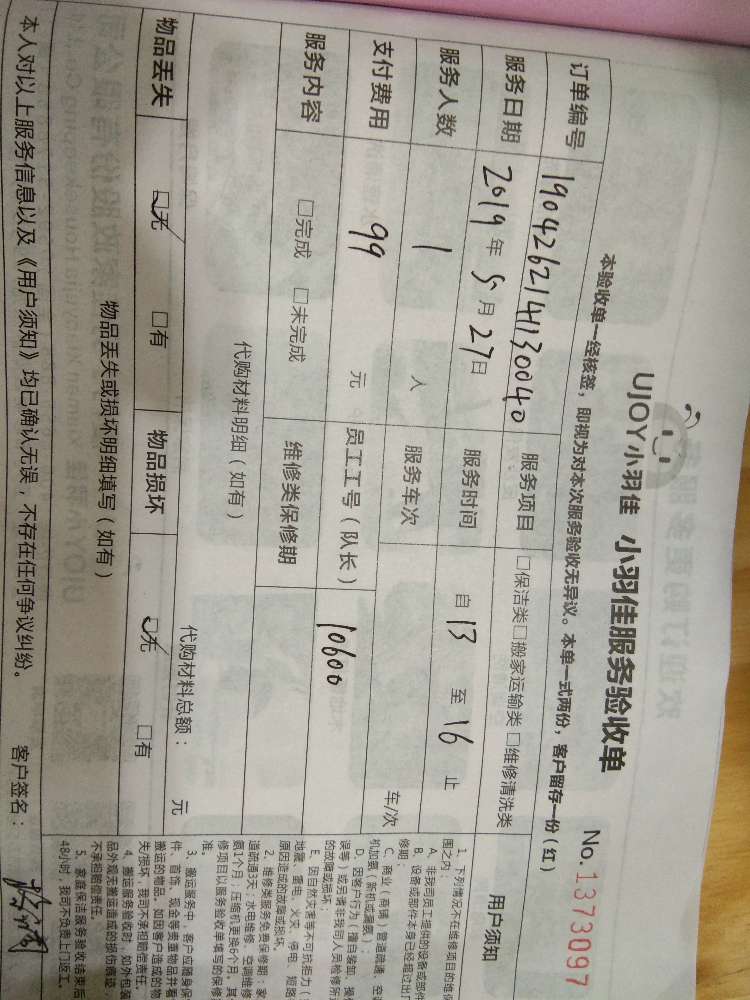 UJOY小羽佳 小羽佳服务验收单
No.1373097
本验收单一经核签，即视为对本次服务验收无异议。本单一式两份，客户留存一份(红)
订单编号 190426214130040 服务项目 □保洁类□搬家运输类□维修清洗类
服务日期 2019年5月27日 服务时间 自13至16止
服务人数 1 人 服务车次 车/次
支付费用 99 元 员工工号（队长） 10600
服务内容 □完成 □未完成 维修类保修期
代购材料明细（如有） 代购材料总额： 元
物品丢失 ☑无 □有 物品损坏 ☑无 □有
物品丢失或损坏明细填写（如有）
本人对以上服务信息以及《用户须知》均已确认无误，不存在任何争议纠纷。 客户签名：
用户须知
1、下列情况不在维修项目的维保
围之内：
A、非我司员工提供的设备或部件
B、设备或部件本身已经超过出厂
修期；
C、商业（商铺）管道疏通、空调
机加氨（新机或漏氨）；
D、因客户行为（擅自装卸、操
误等）或另请非我司人员检修所
的故障或损坏；
E、因自然灾害等不可抗拒力（
地震、雷电、火灾、停电、短路
原因造成的故障或损坏。
2、维修类服务免费保修期：家
道疏通3天；水电维修、空调维修
氨1个月；压缩机更换6个月。其
修项目以服务验收单填写的保修
准。
3、搬运服务中，客户应随身保
件、首饰、现金等贵重物品并看
搬运的物品。如因客户造成的物
失/损坏，我司不承担赔偿责任。
4、搬运服务验收时，如外包装
品外观无搬运造成的损伤痕迹，
不承担赔偿责任。
5、家庭保洁服务验收结束后
48小时，我司不负责上门返工。